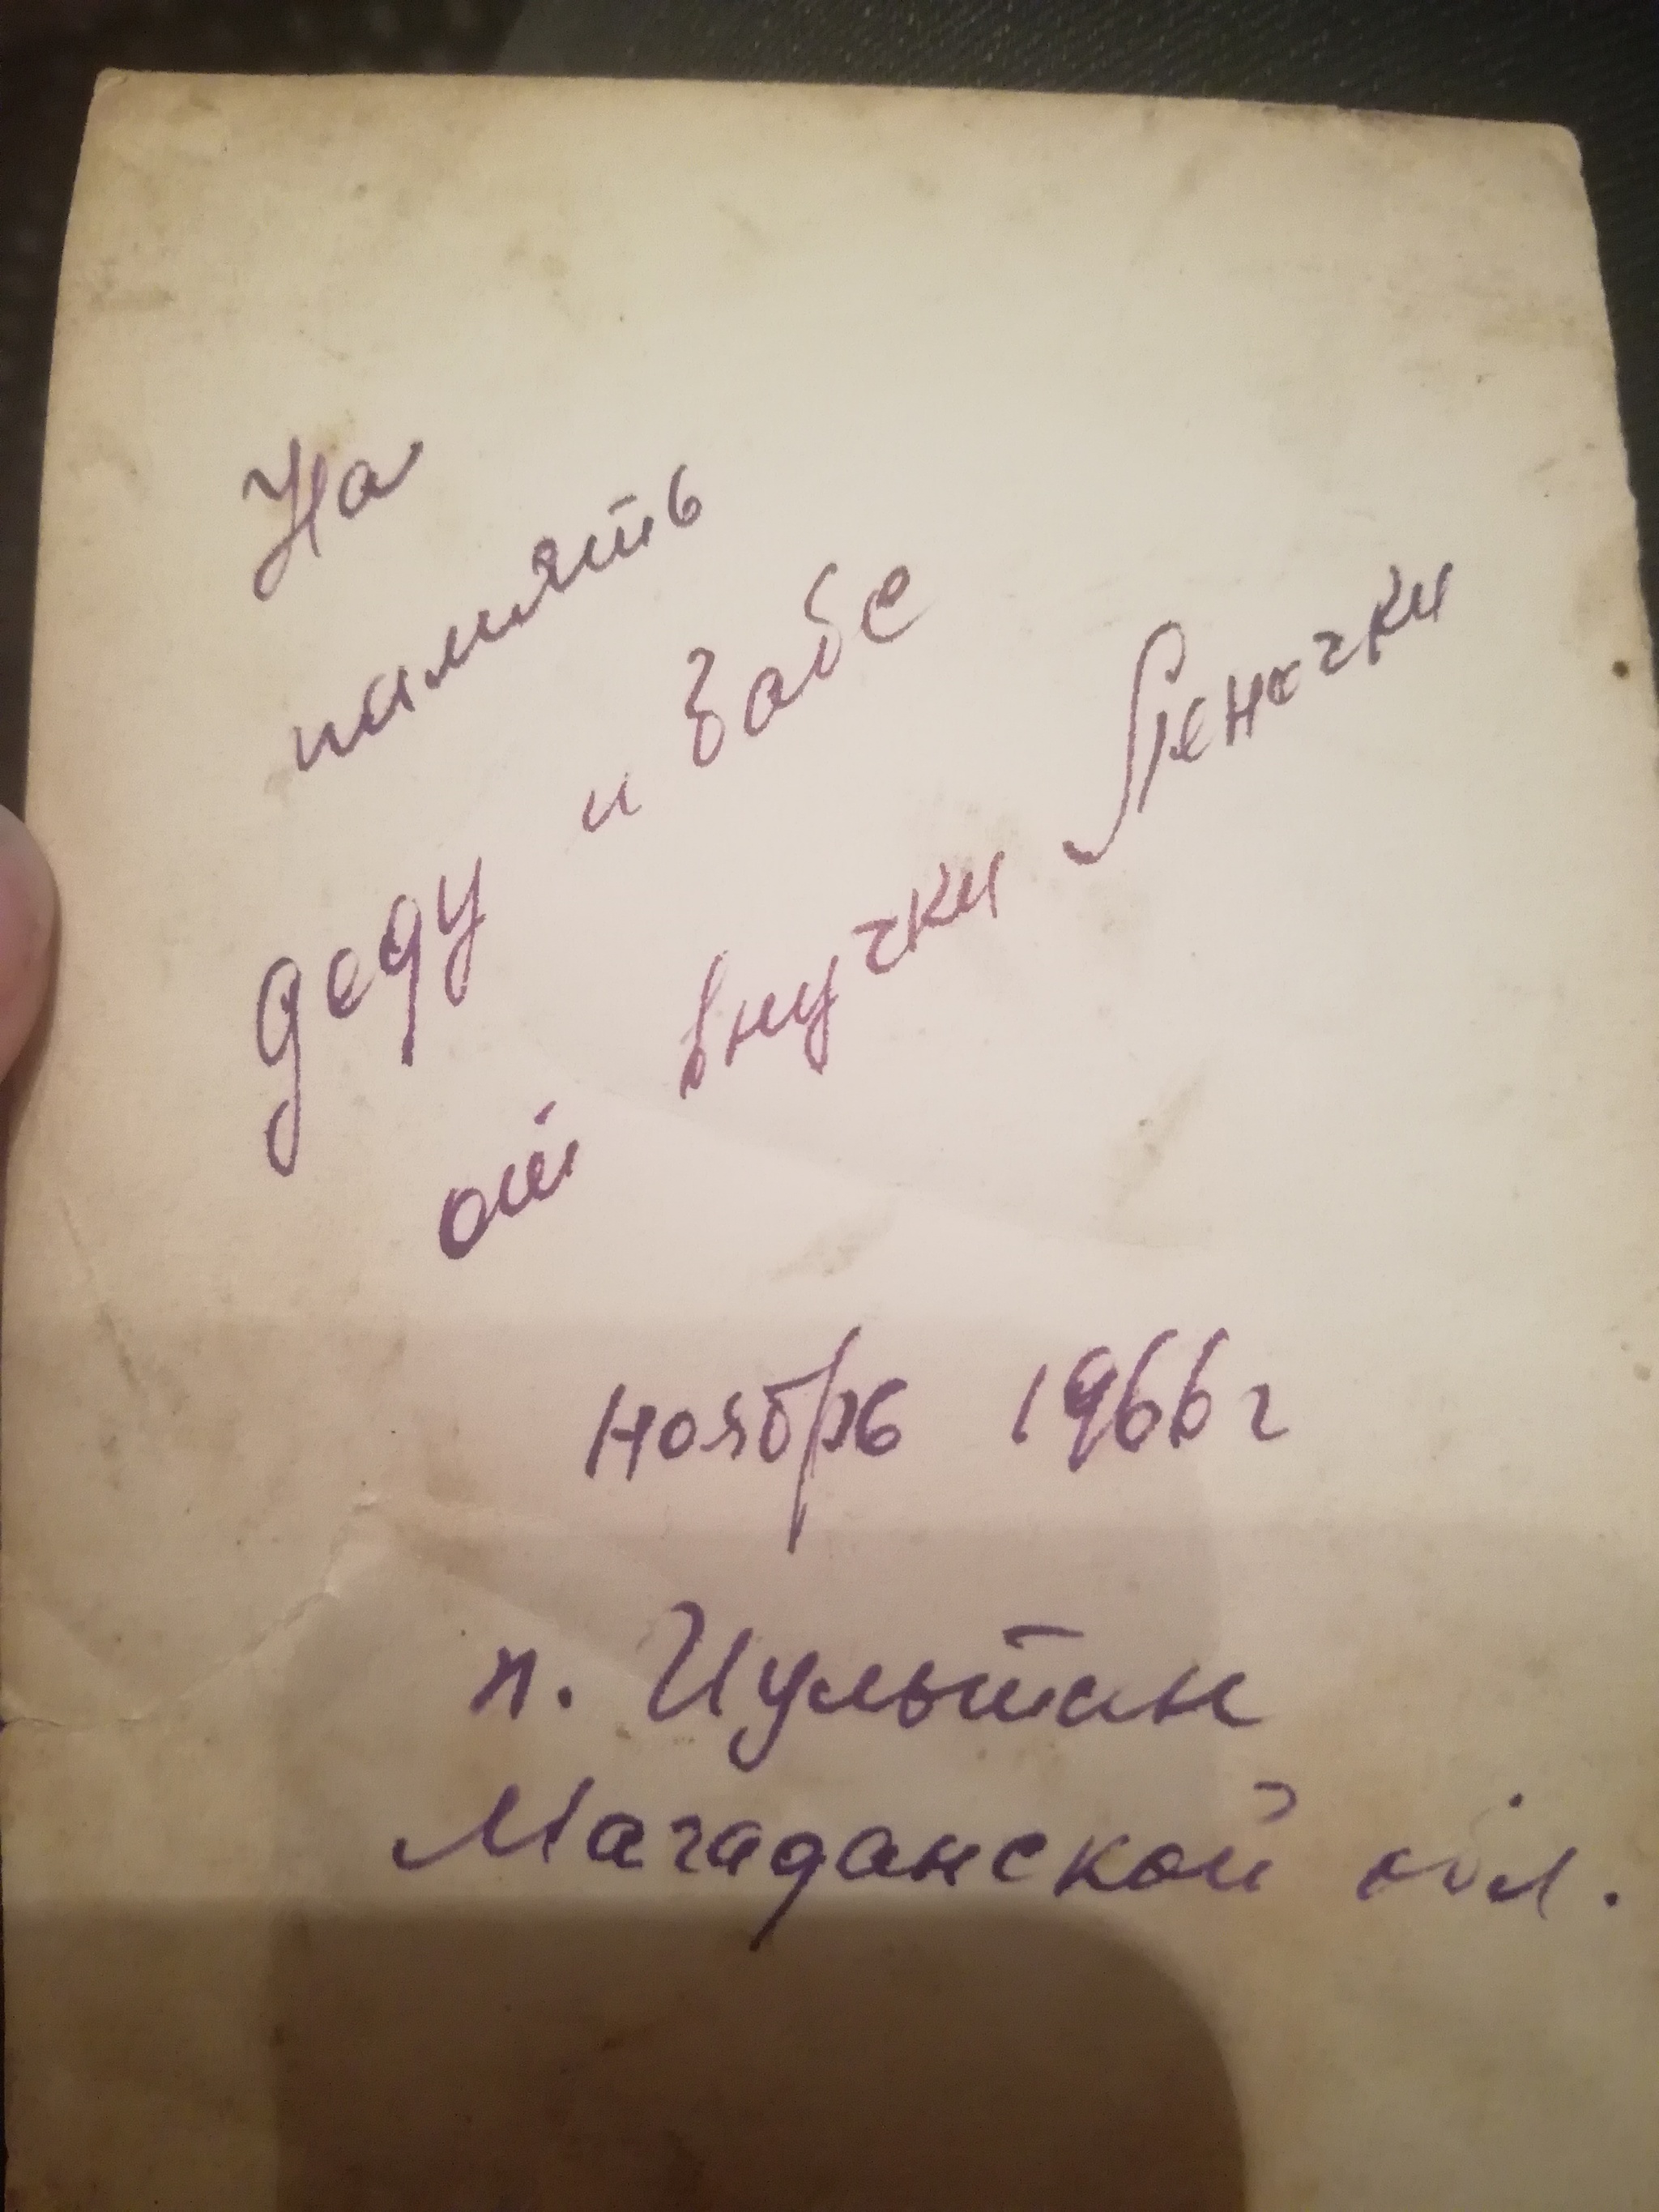 На
память
деду и бабе
от внучки Леночки
ноябрь 1966 г
п. Иультин
Магаданской обл.